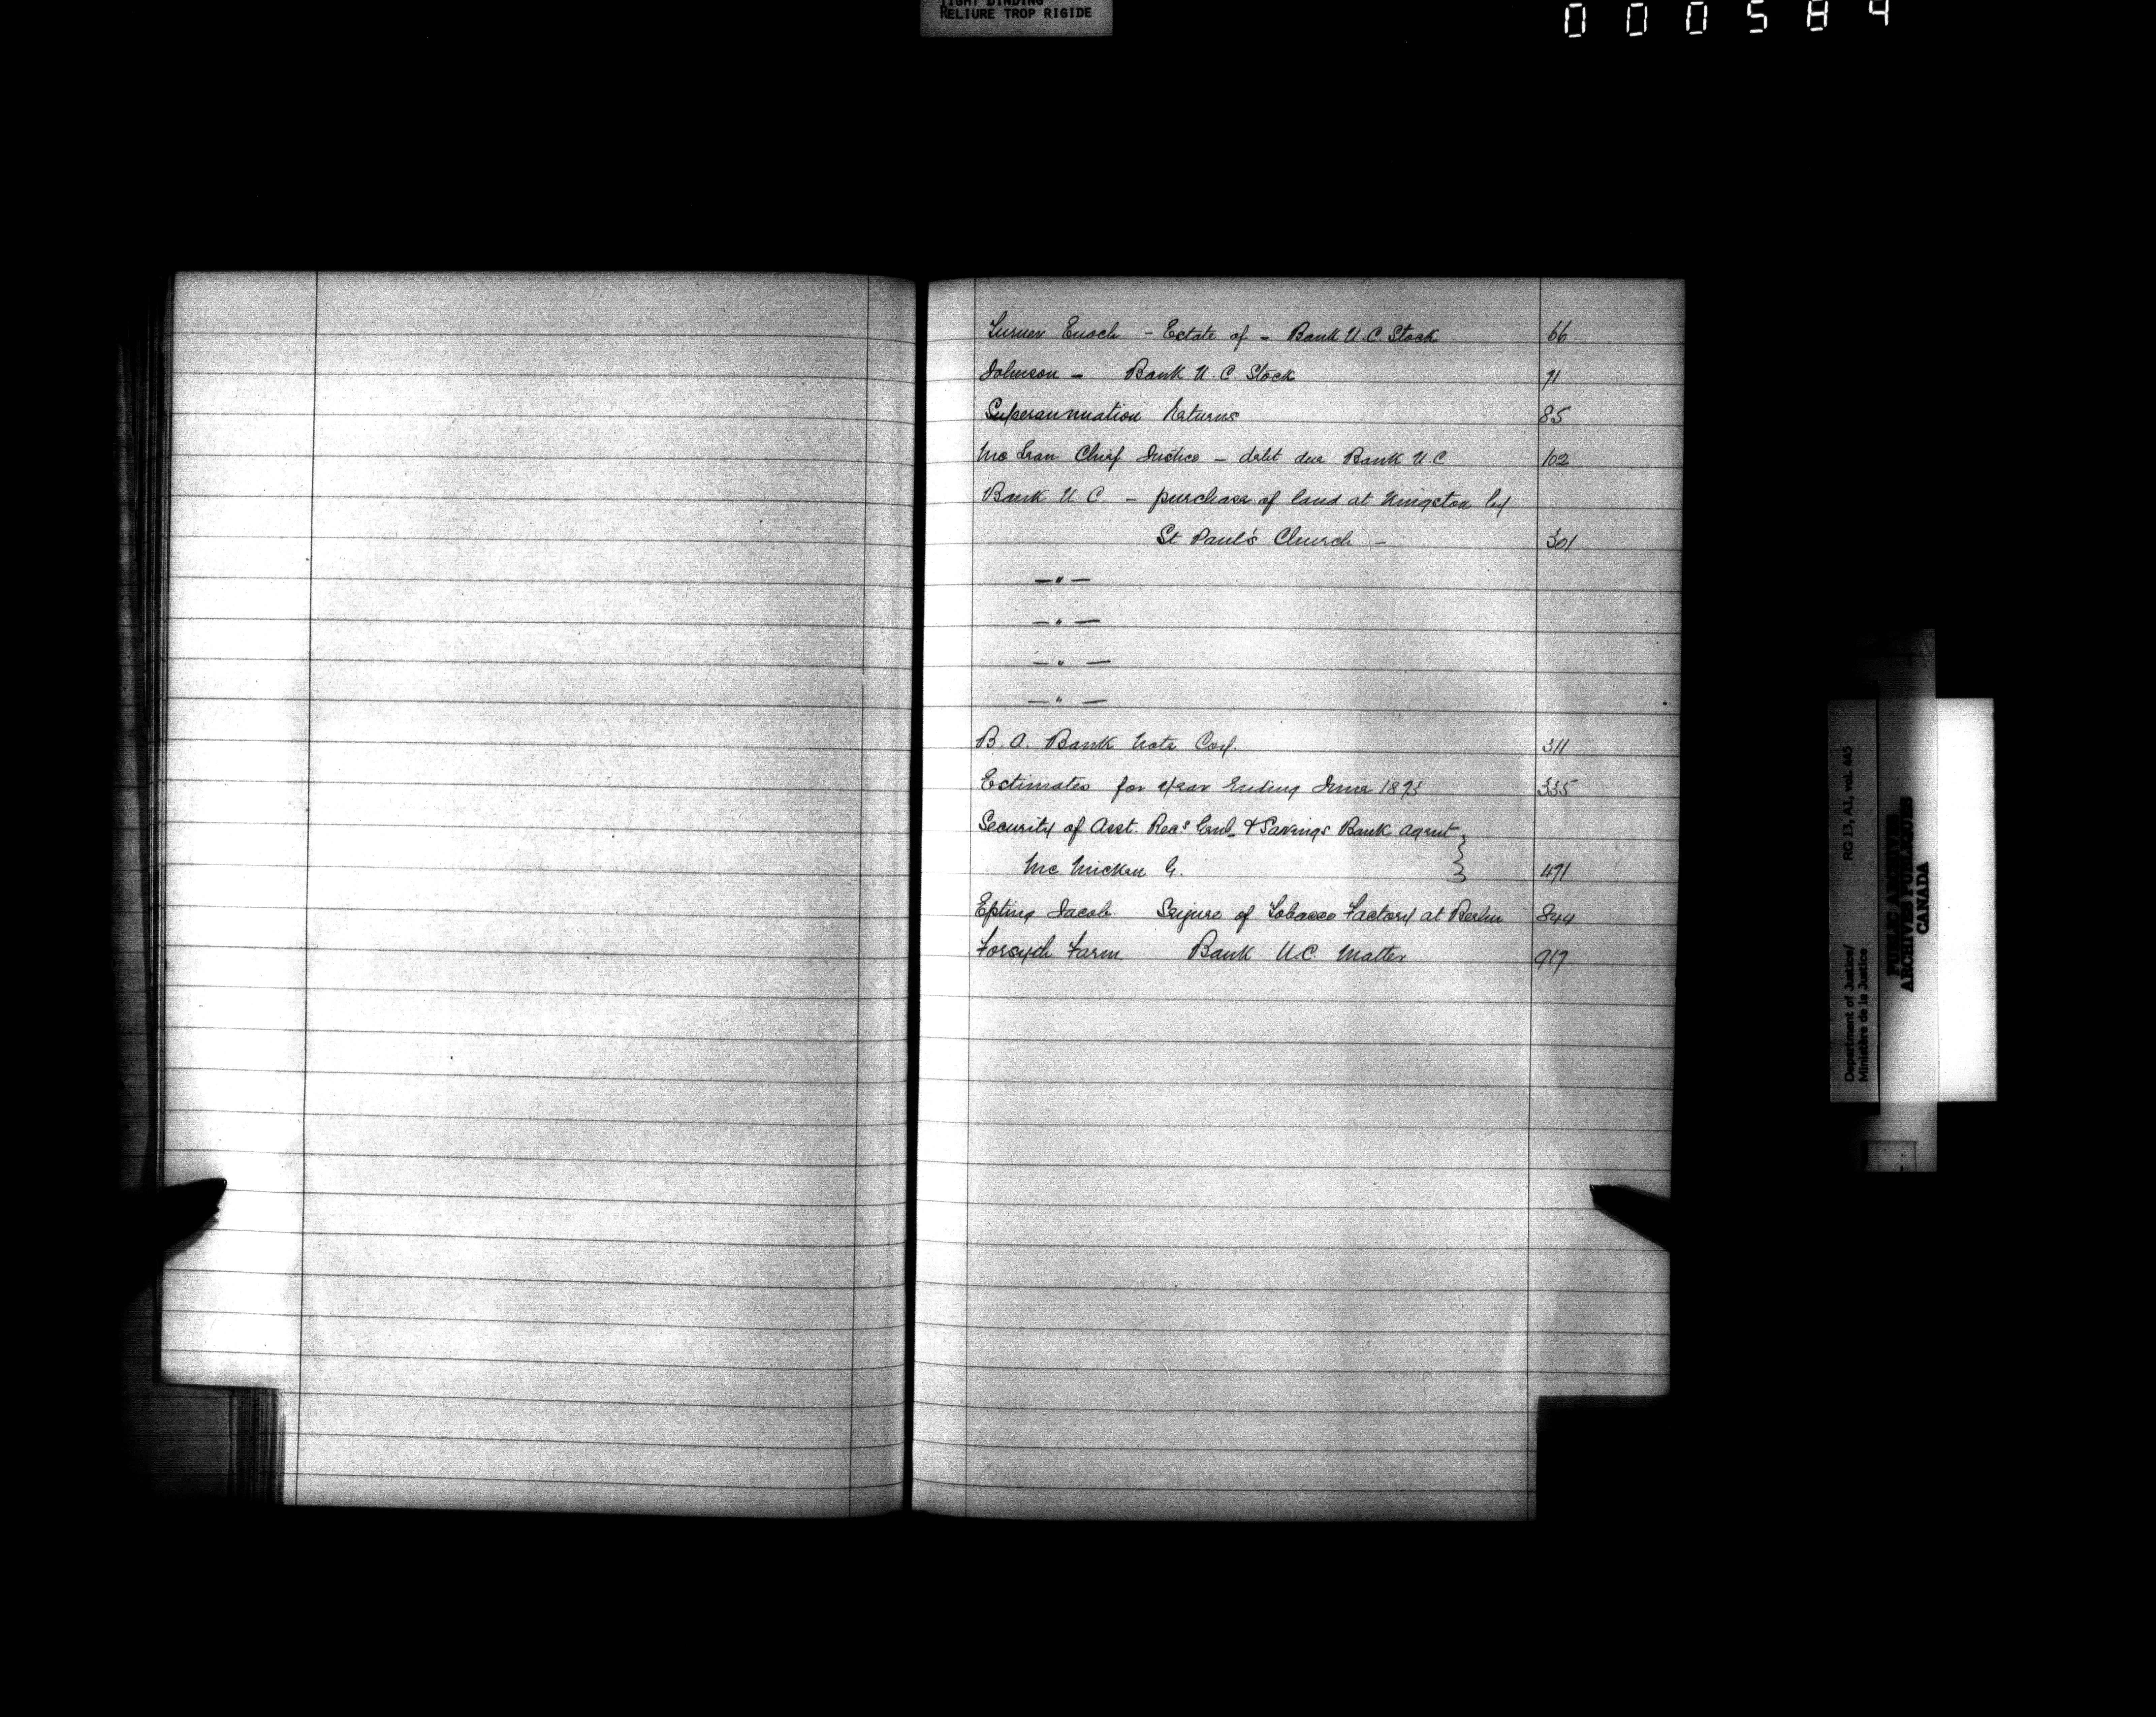 TIGHT BINDING
RELIURE TROP RIGIDE
000584
Turner Enoch - Estate of - Bank U.C. Stock 66
Johnson - Bank U.C. Stock 71
Superannuation Returns 85
McLean Chief Justice - debt due Bank U.C 102
Bank U.C. - purchase of land at Kingston by
St Paul's Church - 301
— " —
— " —
— " —
— " —
B.A. Bank Note Coy. 311
Estimates for year Ending June 1873 335
Security of Asst. Recr Genl & Savings Bank agent }
Mc Micken G. 471
Epting Jacob Seizure of Tobacco Factory at Berlin 844
Forsyth Farm Bank U.C. Matter 917
Department of Justice/ RG 13, A1, vol. 445
Ministère de la Justice
PUBLIC ARCHIVES
ARCHIVES PUBLIQUES
CANADA